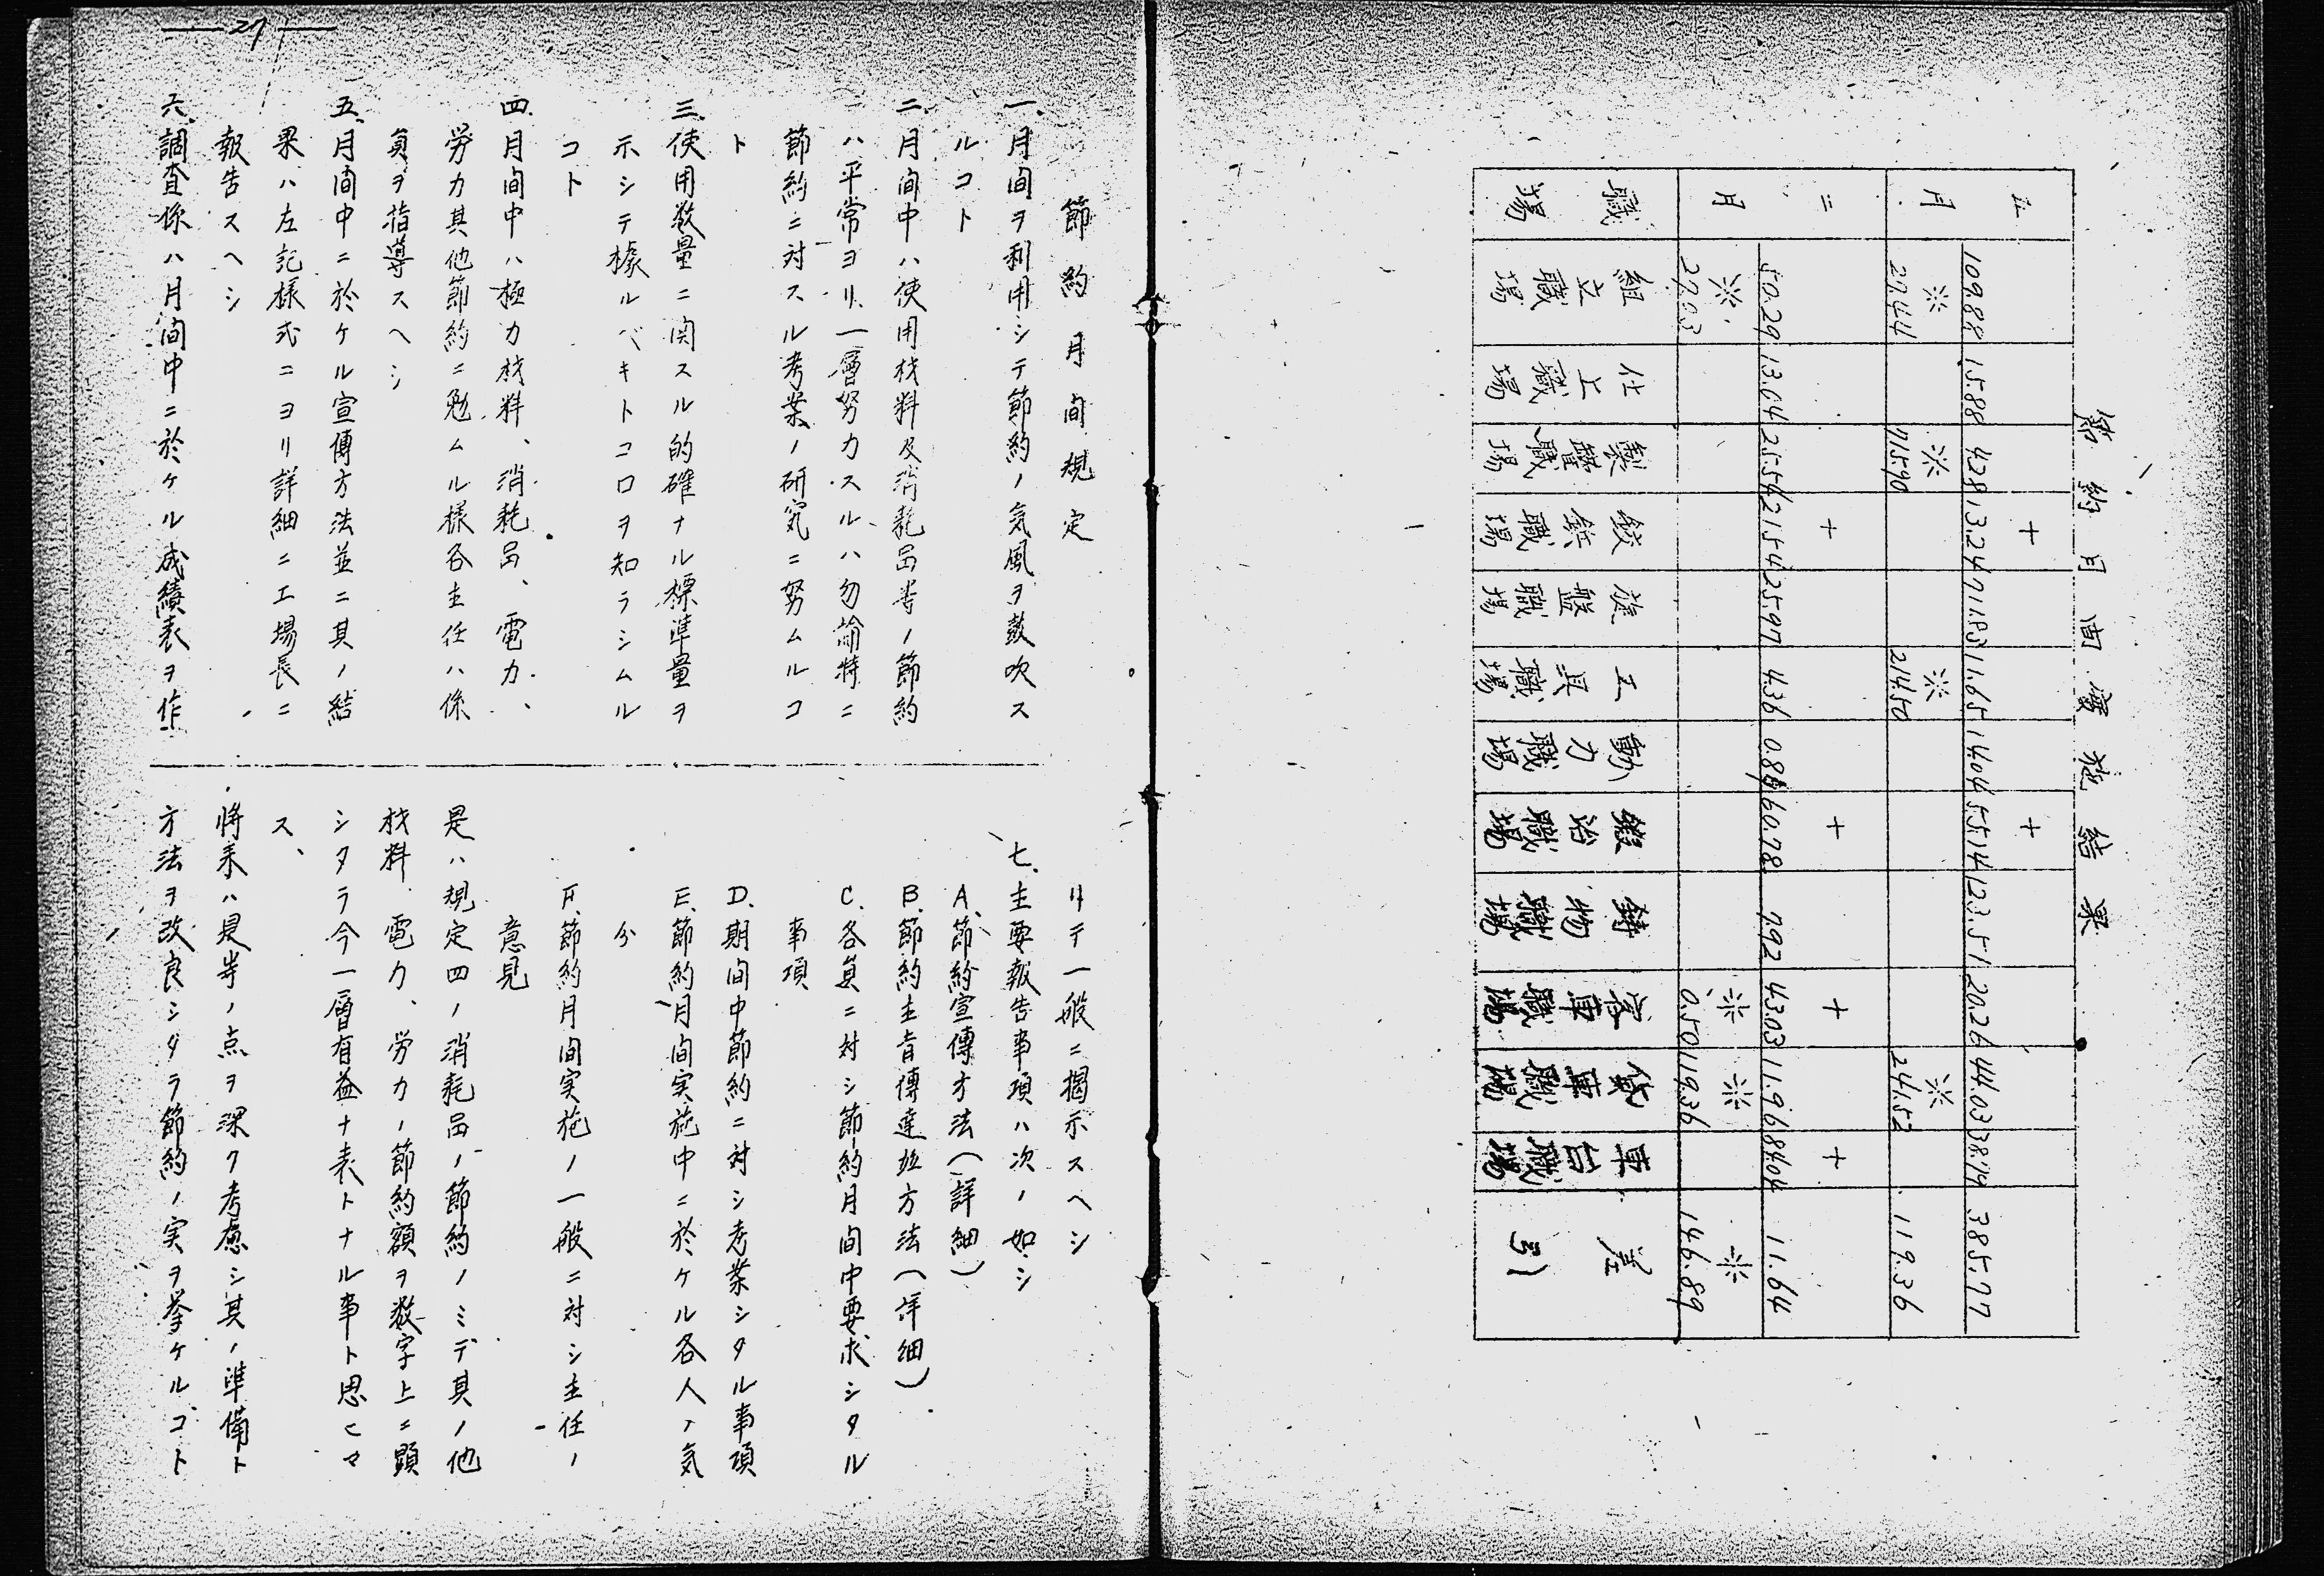 節約月間實施結果
月
109.88 15.88 428 + 13.24 71.83 11.65 14.04 + 55.14 123.51 20.26 44.03 38.19 385.77
※ 27.44 ※ 715.90 ※ 214.50 ※ 241.52 119.36
二月
50.29 13.04 25.54 + 215.4 25.97 4.36 + 60.78 7.92 + 43.03 11.96 + 84.04 11.64
※ 27.03 ※ 0.50 ※ 119.36 ※ 146.89
職場
組立職場
仕上職場
製罐職場
鉸鋲職場
旋盤職場
工具職場
動力職場
鍛冶職場
鑄物職場
客車職場
貨車職場
車台職場
差引
27
節約月間規定
一、月間ヲ利用シテ節約ノ気風ヲ鼓吹ス
ルコト
二、月間中ハ使用材料及消耗品等ノ節約
ハ平常ヨリ一層努力スルハ勿論特ニ
節約ニ対スル考案ノ研究ニ努ムルコ
ト
三、使用数量ニ関スル的確ナル標準量ヲ
示シテ據ルベキトコロヲ知ラシムル
コト
四、月間中ハ極力材料、消耗品、電力、
労力其他節約ニ勉ムル様各主任ハ係
員ヲ指導スヘシ
五、月間中ニ於ケル宣傳方法並ニ其ノ結
果ハ左記様式ニヨリ詳細ニ工場長ニ
報告スヘシ
六、調査係ハ月間中ニ於ケル成績表ヲ作
リテ一般ニ揭示スヘシ
七、主要報告事項ハ次ノ如シ
A、節約宣傳方法(詳細)
B、節約主旨傳達並方法(詳細)
C、各員ニ対シ節約月間中要求シタル
事項
D、期間中節約ニ対シ考案シタル事項
E、節約月間実施中ニ於ケル各人ノ気
分
F、節約月間実施ノ一般ニ対シ主任ノ
意見
是ハ規定四ノ消耗品ノ節約ノミデ其ノ他
材料、電力、労力ノ節約額ヲ数字上ニ顕
シタラ今一層有益ナ表トナル事ト思ヒマ
ス、
将来ハ是等ノ点ヲ深ク考慮シ其ノ準備ト
方法ヲ改良シタラ節約ノ実ヲ挙ケルコト